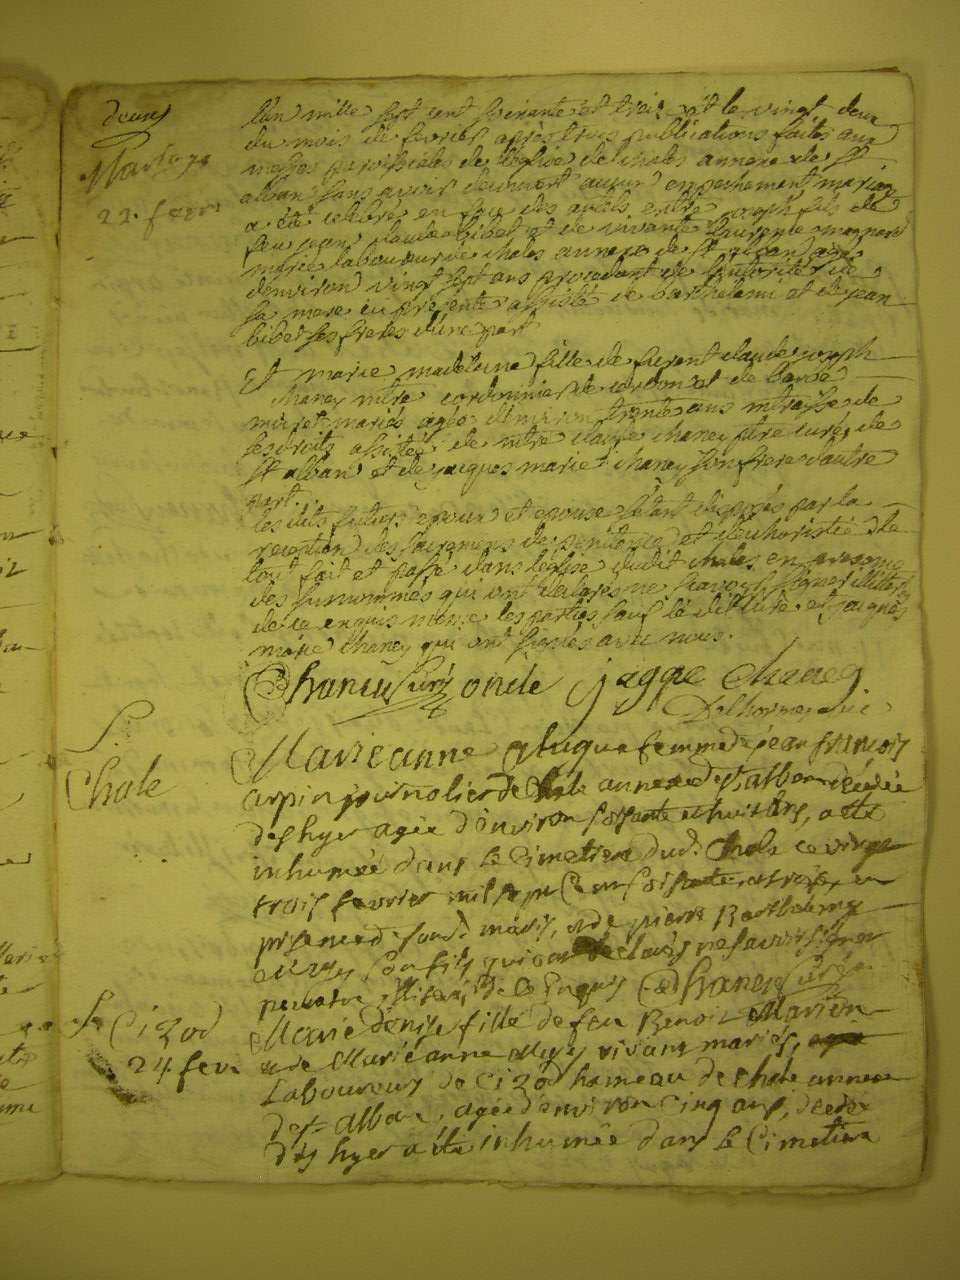 Deux
Mariage
22. fevri
l'an mille sept cent soixante et treize et le vingt deux
du mois de fevrier apres trois publications faites aux
messes paroissiales de l'eglise de chales annexe de St
alban sans avoir decouvert aucun empechement mariage
a été celebré en face des autels entre joseph fils de
feu jean claude bibet et de vivante laurence
mariés laboureur de chales annexe de St alban agés
denviron vingt sept ans procedant de l'autorité de
sa mere cy presente assisté de barthelemi et de jean
bibet ses freres d'une part
Et marie madelaine fille de furent claude joseph
chaney mtre cordonnier de cerdon et de
mariés agée denviron trente ans mtresse de
ses droits assistée de mtre claude chaney ptre curé de
St alban et de jacques marie chaney son frere d'autre
part.
les dits futurs epoux et epouse s'etant disposés par la
reception des sacremens de penitence et d'eucharistie le
tout fait et passé dans leglise dudit chales en presence
des susnommés qui ont declarés ne scavoir signer illitérés
de ce enquis meme les parties sauf le dit curé et jacques
marie chaney qui ont signés avec nous.
Chaney curé oncle jaqque Chaney
Delhorme vic
S.
Chale
Marie anne femme de jean françois
arpin journolier de Chale annexe de St alban décédée
des hyer agée d'environ soissante et huit ans, a été
inhumée dans le Cimetiere dud. Chale ce vingt
trois fevrier mil sept Cent soissante et treize, en
presence de sond. maris, et de pierre Barthelemy
son fils qui ont déclarés ne savoir signer
de ce Enquis Chaney curé
S. Cizod
24. fevr
Marie denise fille de feu Benoit Marion
et de Marie anne vivans mariés,
Laboureurs de Cizod hameau de Chale annexe
de St alban, agée d'environ Cinq ans, decedée
dès hyer a été inhumée dans le Cimetiere